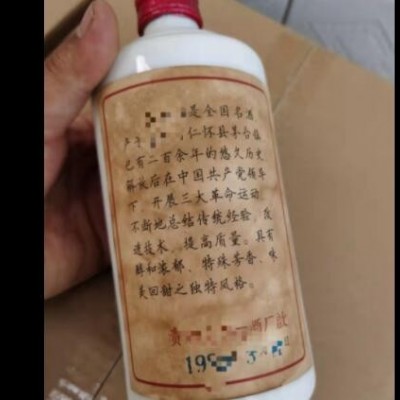 是全国名酒
产于 ,仁怀县茅台镇
已有二百余年的悠久历史
解放后在中国共产党领导
下 开展三大革命运动
不断地总结传统经验,改
进技术、提高质量。具有
醇和浓郁、特殊芳香、味
美回甜之独特风格。
贵 酒厂敬
19